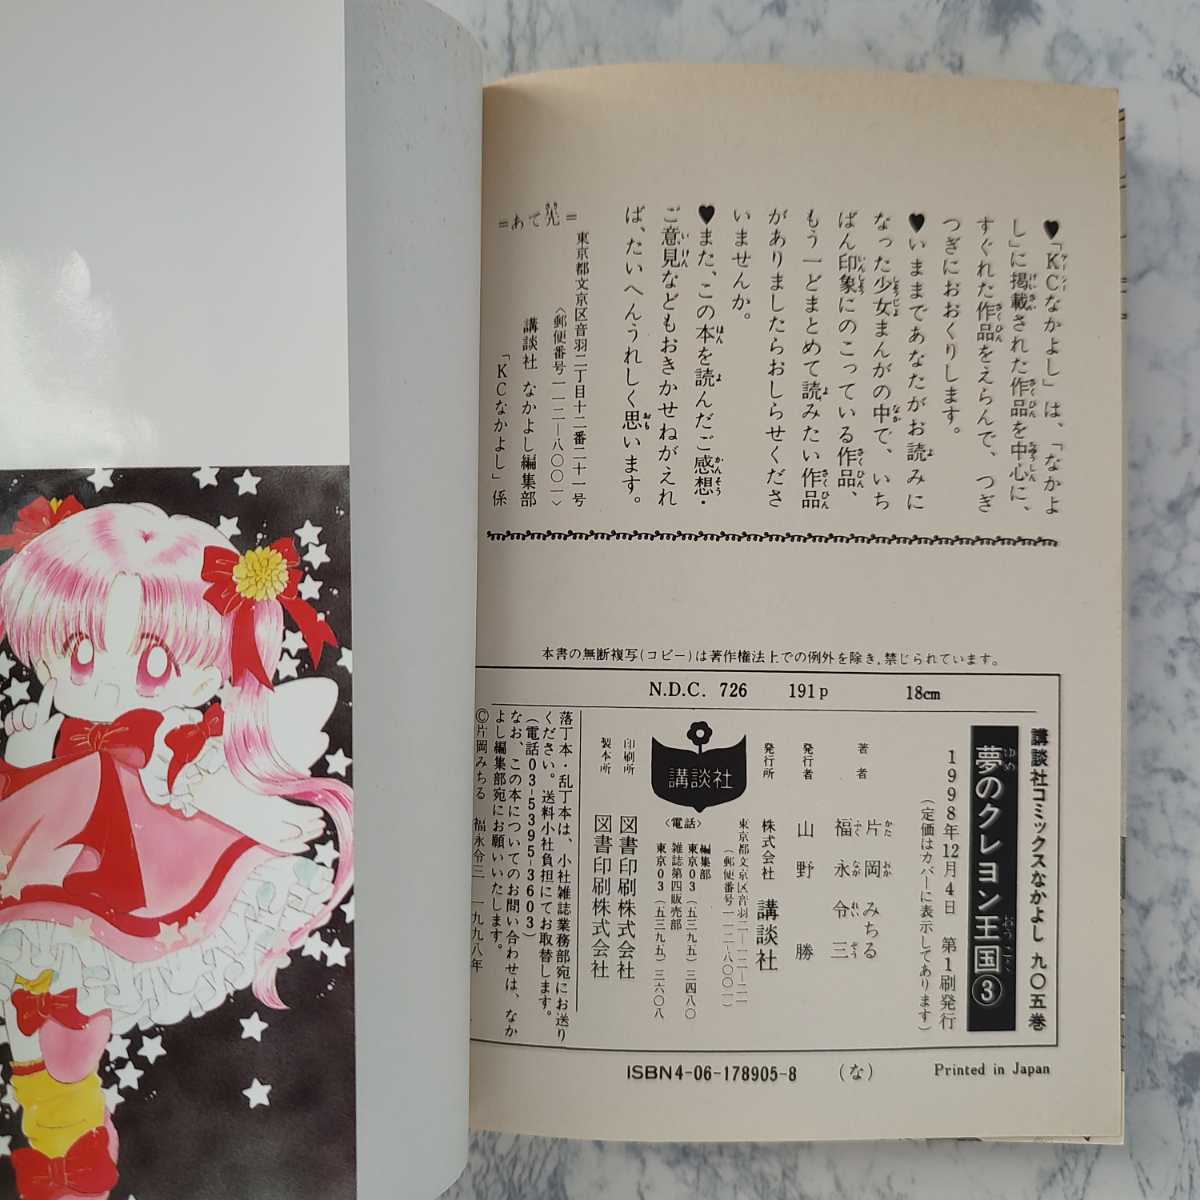 ♥「KCなかよし」は、「なかよ
し」に掲載された作品を中心に、
すぐれた作品をえらんで、つぎ
つぎにおおくりします。
♥いままであなたがお読みに
なった少女まんがの中で、いち
ばん印象にのこっている作品、
もう一どまとめて読みたい作品
がありましたらおしらせくださ
いませんか。
♥また、この本を読んだご感想・
ご意見などもおきかせねがえれ
ば、たいへんうれしく思います。
=あて先=
東京都文京区音羽二丁目十二番二十一号
〈郵便番号一一二―八〇〇一〉
講談社 なかよし編集部
「KCなかよし」係
本書の無断複写(コピー)は著作権法上での例外を除き、禁じられています。
N.D.C. 726 191p 18cm
講談社コミックスなかよし 九〇五巻
夢のクレヨン王国③
1998年12月4日 第1刷発行
(定価はカバーに表示してあります)
著者 片岡みちる
福永令三
発行者 山野勝
発行所 株式会社 講談社
東京都文京区音羽二―一二―二一
(郵便番号一一二―八〇〇一)
講談社
〈電話〉
編集部
東京03(五三九五)三四八〇
雑誌第四販売部
東京03(五三九五)三六〇八
印刷所 図書印刷株式会社
製本所 図書印刷株式会社
落丁本・乱丁本は、小社雑誌業務部宛にお送り
ください。送料小社負担にてお取替します。
(電話03-5395-3603)
なお、この本についてのお問い合わせは、なか
よし編集部宛にお願いいたします。
©片岡みちる 福永令三 一九九八年
ISBN4-06-178905-8 (な) Printed in Japan